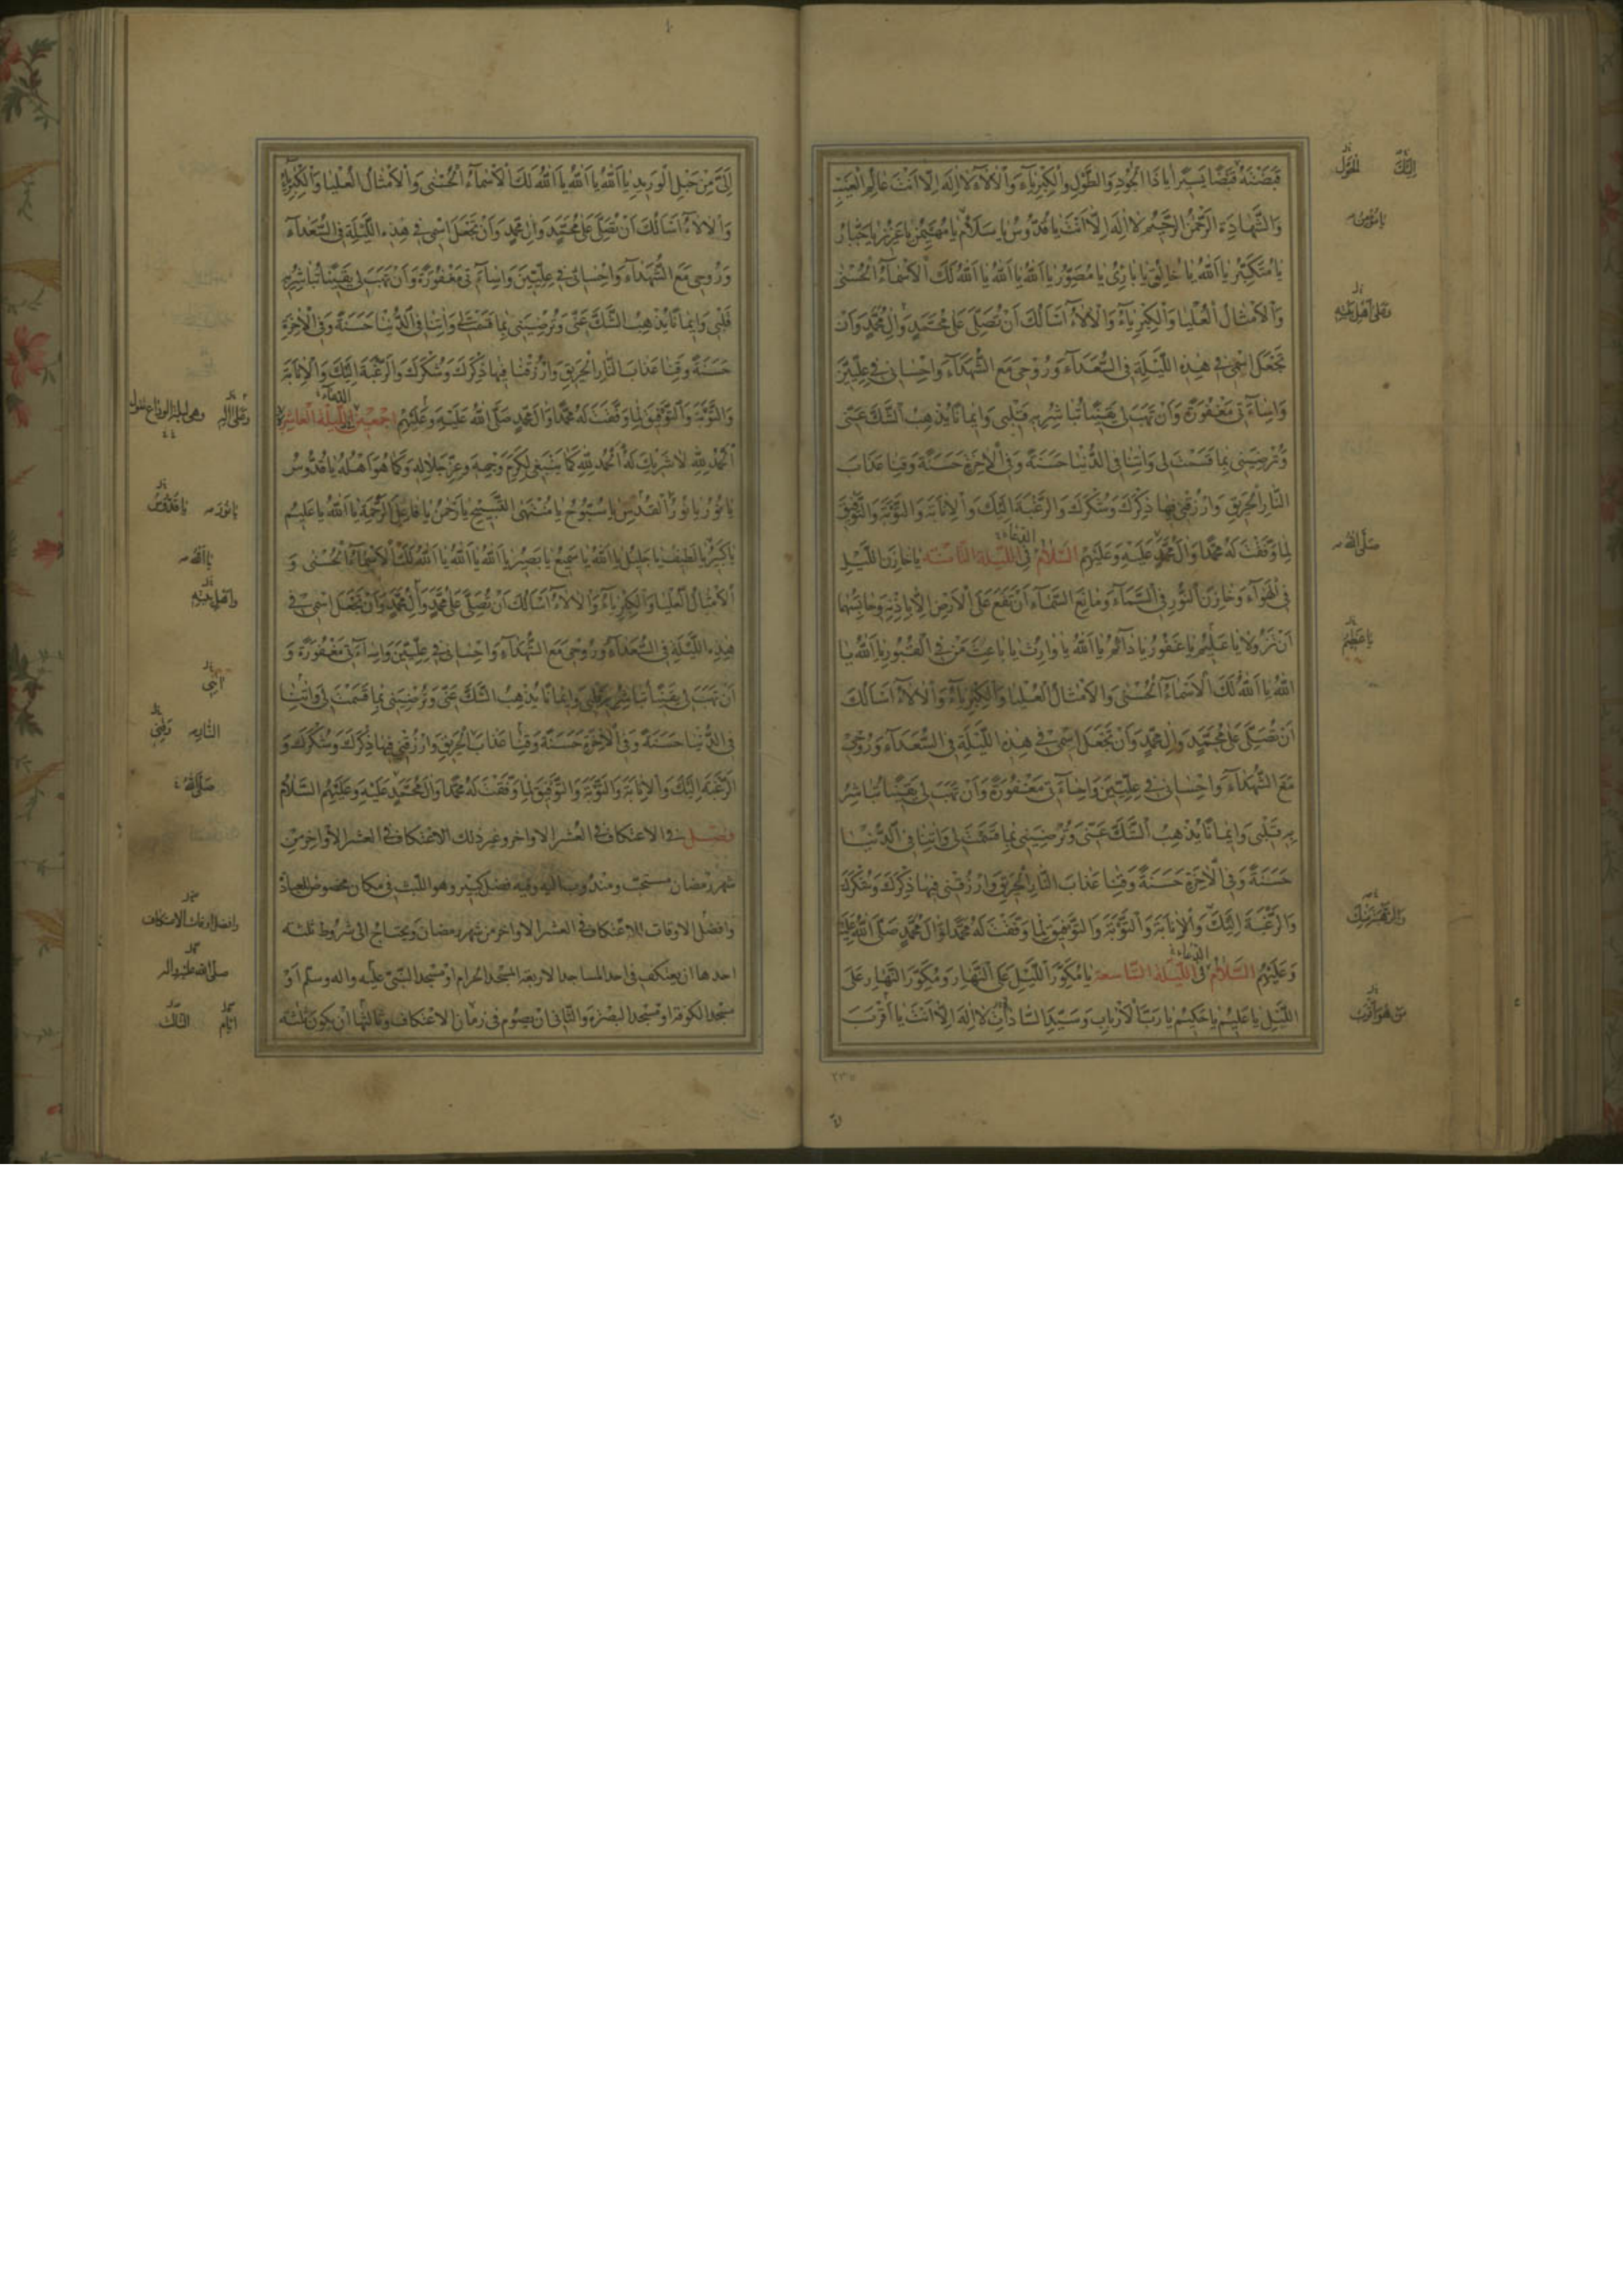 قَبَضْتَهُ قَبْضًا يَسِيرًا يَا ذَا الْجُودِ وَالطَّوْلِ وَالْكِبْرِيَاءِ وَالْآلَاءِ لَا إِلَهَ إِلَّا أَنْتَ عَالِمُ الْغَيْبِ
وَالشَّهَادَةِ الرَّحْمٰنُ الرَّحِيمُ لَا إِلَهَ إِلَّا أَنْتَ يَا قُدُّوسُ يَا سَلَامُ يَا مُهَيْمِنُ يَا عَزِيزُ يَا جَبَّارُ
يَا مُتَكَبِّرُ يَا اللهُ يَا خَالِقُ يَا بَارِئُ يَا مُصَوِّرُ يَا اللهُ يَا اللهُ يَا اللهُ لَكَ الْأَسْمَاءُ الْحُسْنَى
وَالْأَمْثَالُ الْعُلْيَا وَالْكِبْرِيَاءُ وَالْآلَاءُ أَسْأَلُكَ أَنْ تُصَلِّيَ عَلَى مُحَمَّدٍ وَآلِ مُحَمَّدٍ وَأَنْ
تَجْعَلَ اسْمِي فِي هٰذِهِ اللَّيْلَةِ فِي السُّعَدَاءِ وَرُوحِي مَعَ الشُّهَدَاءِ وَإِحْسَانِي فِي عِلِّيِّينَ
وَإِسَاءَتِي مَغْفُورَةً وَأَنْ تَهَبَ لِي يَقِينًا تُبَاشِرُ بِهِ قَلْبِي وَإِيمَانًا يُذْهِبُ الشَّكَّ عَنِّي
وَتُرْضِيَنِي بِمَا قَسَمْتَ لِي وَآتِنَا فِي الدُّنْيَا حَسَنَةً وَفِي الْآخِرَةِ حَسَنَةً وَقِنَا عَذَابَ
النَّارِ الْحَرِيقِ وَارْزُقْنِي فِيهَا ذِكْرَكَ وَشُكْرَكَ وَالرَّغْبَةَ إِلَيْكَ وَالْإِنَابَةَ وَالتَّوْبَةَ وَالتَّوْفِيقَ
لِمَا وَفَّقْتَ لَهُ مُحَمَّدًا وَآلَ مُحَمَّدٍ عَلَيْهِ وَعَلَيْهِمُ السَّلَامُ الدعاء فِي اللَّيْلَةِ الثَّامِنَةِ يَا خَازِنَ اللَّيْلِ
فِي الْهَوَاءِ وَخَازِنَ النُّورِ فِي السَّمَاءِ وَمَانِعَ السَّمَاءِ أَنْ تَقَعَ عَلَى الْأَرْضِ إِلَّا بِإِذْنِهِ وَحَابِسَهُمَا
أَنْ تَزُولَا يَا عَلِيمُ يَا غَفُورُ يَا دَائِمُ يَا اللهُ يَا وَارِثُ يَا بَاعِثَ مَنْ فِي الْقُبُورِ يَا اللهُ يَا
اللهُ يَا اللهُ لَكَ الْأَسْمَاءُ الْحُسْنَى وَالْأَمْثَالُ الْعُلْيَا وَالْكِبْرِيَاءُ وَالْآلَاءُ أَسْأَلُكَ
أَنْ تُصَلِّيَ عَلَى مُحَمَّدٍ وَآلِ مُحَمَّدٍ وَأَنْ تَجْعَلَ اسْمِي فِي هٰذِهِ اللَّيْلَةِ فِي السُّعَدَاءِ وَرُوحِي
مَعَ الشُّهَدَاءِ وَإِحْسَانِي فِي عِلِّيِّينَ وَإِسَاءَتِي مَغْفُورَةً وَأَنْ تَهَبَ لِي يَقِينًا تُبَاشِرُ
بِهِ قَلْبِي وَإِيمَانًا يُذْهِبُ الشَّكَّ عَنِّي وَتُرْضِيَنِي بِمَا قَسَمْتَ لِي وَآتِنَا فِي الدُّنْيَا
حَسَنَةً وَفِي الْآخِرَةِ حَسَنَةً وَقِنَا عَذَابَ النَّارِ الْحَرِيقِ وَارْزُقْنِي فِيهَا ذِكْرَكَ وَشُكْرَكَ
وَالرَّغْبَةَ إِلَيْكَ وَالْإِنَابَةَ وَالتَّوْبَةَ وَالتَّوْفِيقَ لِمَا وَفَّقْتَ لَهُ مُحَمَّدًا وَآلَ مُحَمَّدٍ صَلَّى اللهُ عَلَيْهِ
وَعَلَيْهِمُ السَّلَامُ الدعاء فِي اللَّيْلَةِ التَّاسِعَةِ يَا مُكَوِّرَ اللَّيْلِ عَلَى النَّهَارِ وَمُكَوِّرَ النَّهَارِ عَلَى
اللَّيْلِ يَا عَلِيمُ يَا حَكِيمُ يَا رَبَّ الْأَرْبَابِ وَسَيِّدَ السَّادَاتِ لَا إِلَهَ إِلَّا أَنْتَ يَا أَقْرَبَ
إليك
يا مؤمن
صلى الله
يا عظيم
من هو أقرب
٢٣٥
إِلَيَّ مِنْ حَبْلِ الْوَرِيدِ يَا اللهُ يَا اللهُ يَا اللهُ لَكَ الْأَسْمَاءُ الْحُسْنَى وَالْأَمْثَالُ الْعُلْيَا وَالْكِبْرِيَاءُ
وَالْآلَاءُ أَسْأَلُكَ أَنْ تُصَلِّيَ عَلَى مُحَمَّدٍ وَآلِ مُحَمَّدٍ وَأَنْ تَجْعَلَ اسْمِي فِي هٰذِهِ اللَّيْلَةِ فِي السُّعَدَاءِ
وَرُوحِي مَعَ الشُّهَدَاءِ وَإِحْسَانِي فِي عِلِّيِّينَ وَإِسَاءَتِي مَغْفُورَةً وَأَنْ تَهَبَ لِي يَقِينًا تُبَاشِرُ بِهِ
قَلْبِي وَإِيمَانًا يُذْهِبُ الشَّكَّ عَنِّي وَتُرْضِيَنِي بِمَا قَسَمْتَ لِي وَآتِنَا فِي الدُّنْيَا حَسَنَةً وَفِي الْآخِرَةِ
حَسَنَةً وَقِنَا عَذَابَ النَّارِ الْحَرِيقِ وَارْزُقْنَا فِيهَا ذِكْرَكَ وَشُكْرَكَ وَالرَّغْبَةَ إِلَيْكَ وَالْإِنَابَةَ
وَالتَّوْبَةَ وَالتَّوْفِيقَ لِمَا وَفَّقْتَ لَهُ مُحَمَّدًا وَآلَ مُحَمَّدٍ صَلَّى اللهُ عَلَيْهِ وَعَلَيْهِمْ أَجْمَعِينَ الدعاء فِي اللَّيْلَةِ الْعَاشِرَةِ
اَلْحَمْدُ لِلهِ لَا شَرِيكَ لَهُ الْحَمْدُ لِلهِ كَمَا يَنْبَغِي لِكَرَمِ وَجْهِهِ وَعِزِّ جَلَالِهِ وَكَمَا هُوَ أَهْلُهُ يَا قُدُّوسُ
يَا نُورُ يَا نُورَ الْقُدْسِ يَا سُبُّوحُ يَا مُنْتَهَى التَّسْبِيحِ يَا رَحْمٰنُ يَا فَاعِلَ الرَّحْمَةِ يَا اللهُ يَا عَلِيمُ
يَا كَبِيرُ يَا لَطِيفُ يَا جَلِيلُ يَا اللهُ يَا سَمِيعُ يَا بَصِيرُ يَا اللهُ يَا اللهُ يَا اللهُ لَكَ الْأَسْمَاءُ الْحُسْنَى وَ
الْأَمْثَالُ الْعُلْيَا وَالْكِبْرِيَاءُ وَالْآلَاءُ أَسْأَلُكَ أَنْ تُصَلِّيَ عَلَى مُحَمَّدٍ وَآلِ مُحَمَّدٍ وَأَنْ تَجْعَلَ اسْمِي فِي
هٰذِهِ اللَّيْلَةِ فِي السُّعَدَاءِ وَرُوحِي مَعَ الشُّهَدَاءِ وَإِحْسَانِي فِي عِلِّيِّينَ وَإِسَاءَتِي مَغْفُورَةً وَ
أَنْ تَهَبَ لِي يَقِينًا تُبَاشِرُ بِهِ قَلْبِي وَإِيمَانًا يُذْهِبُ الشَّكَّ عَنِّي وَتُرْضِيَنِي بِمَا قَسَمْتَ لِي وَآتِنَا
فِي الدُّنْيَا حَسَنَةً وَفِي الْآخِرَةِ حَسَنَةً وَقِنَا عَذَابَ الْحَرِيقِ وَارْزُقْنِي فِيهَا ذِكْرَكَ وَشُكْرَكَ وَ
الرَّغْبَةَ إِلَيْكَ وَالْإِنَابَةَ وَالتَّوْبَةَ وَالتَّوْفِيقَ لِمَا وَفَّقْتَ لَهُ مُحَمَّدًا وَآلَ مُحَمَّدٍ عَلَيْهِ وَعَلَيْهِمُ السَّلَامُ
فصل في الاعتكاف في العشر الاواخر وغير ذلك الاعتكاف في العشر الاواخر من
شهر رمضان مستحب ومندوب اليه وفيه فضل كبير وهو اللبث في مكان مخصوص للعبادة
وافضل الاوقات للاعتكاف في العشر الاواخر من شهر رمضان ويحتاج الى شروط ثلثه
احدها ان يعتكف في احد المساجد الاربعة المسجد الحرام او مسجد النبي عليه واله وسلم او
مسجد الكوفة او مسجد البصرة والثاني ان يصوم في زمان الاعتكاف وثالثها ان يكون ثلثه
يا نور يا قدوس
يا الله
النار
صلى الله
وافضل اوقات الاعتكاف
صلى الله عليه واله
ايام